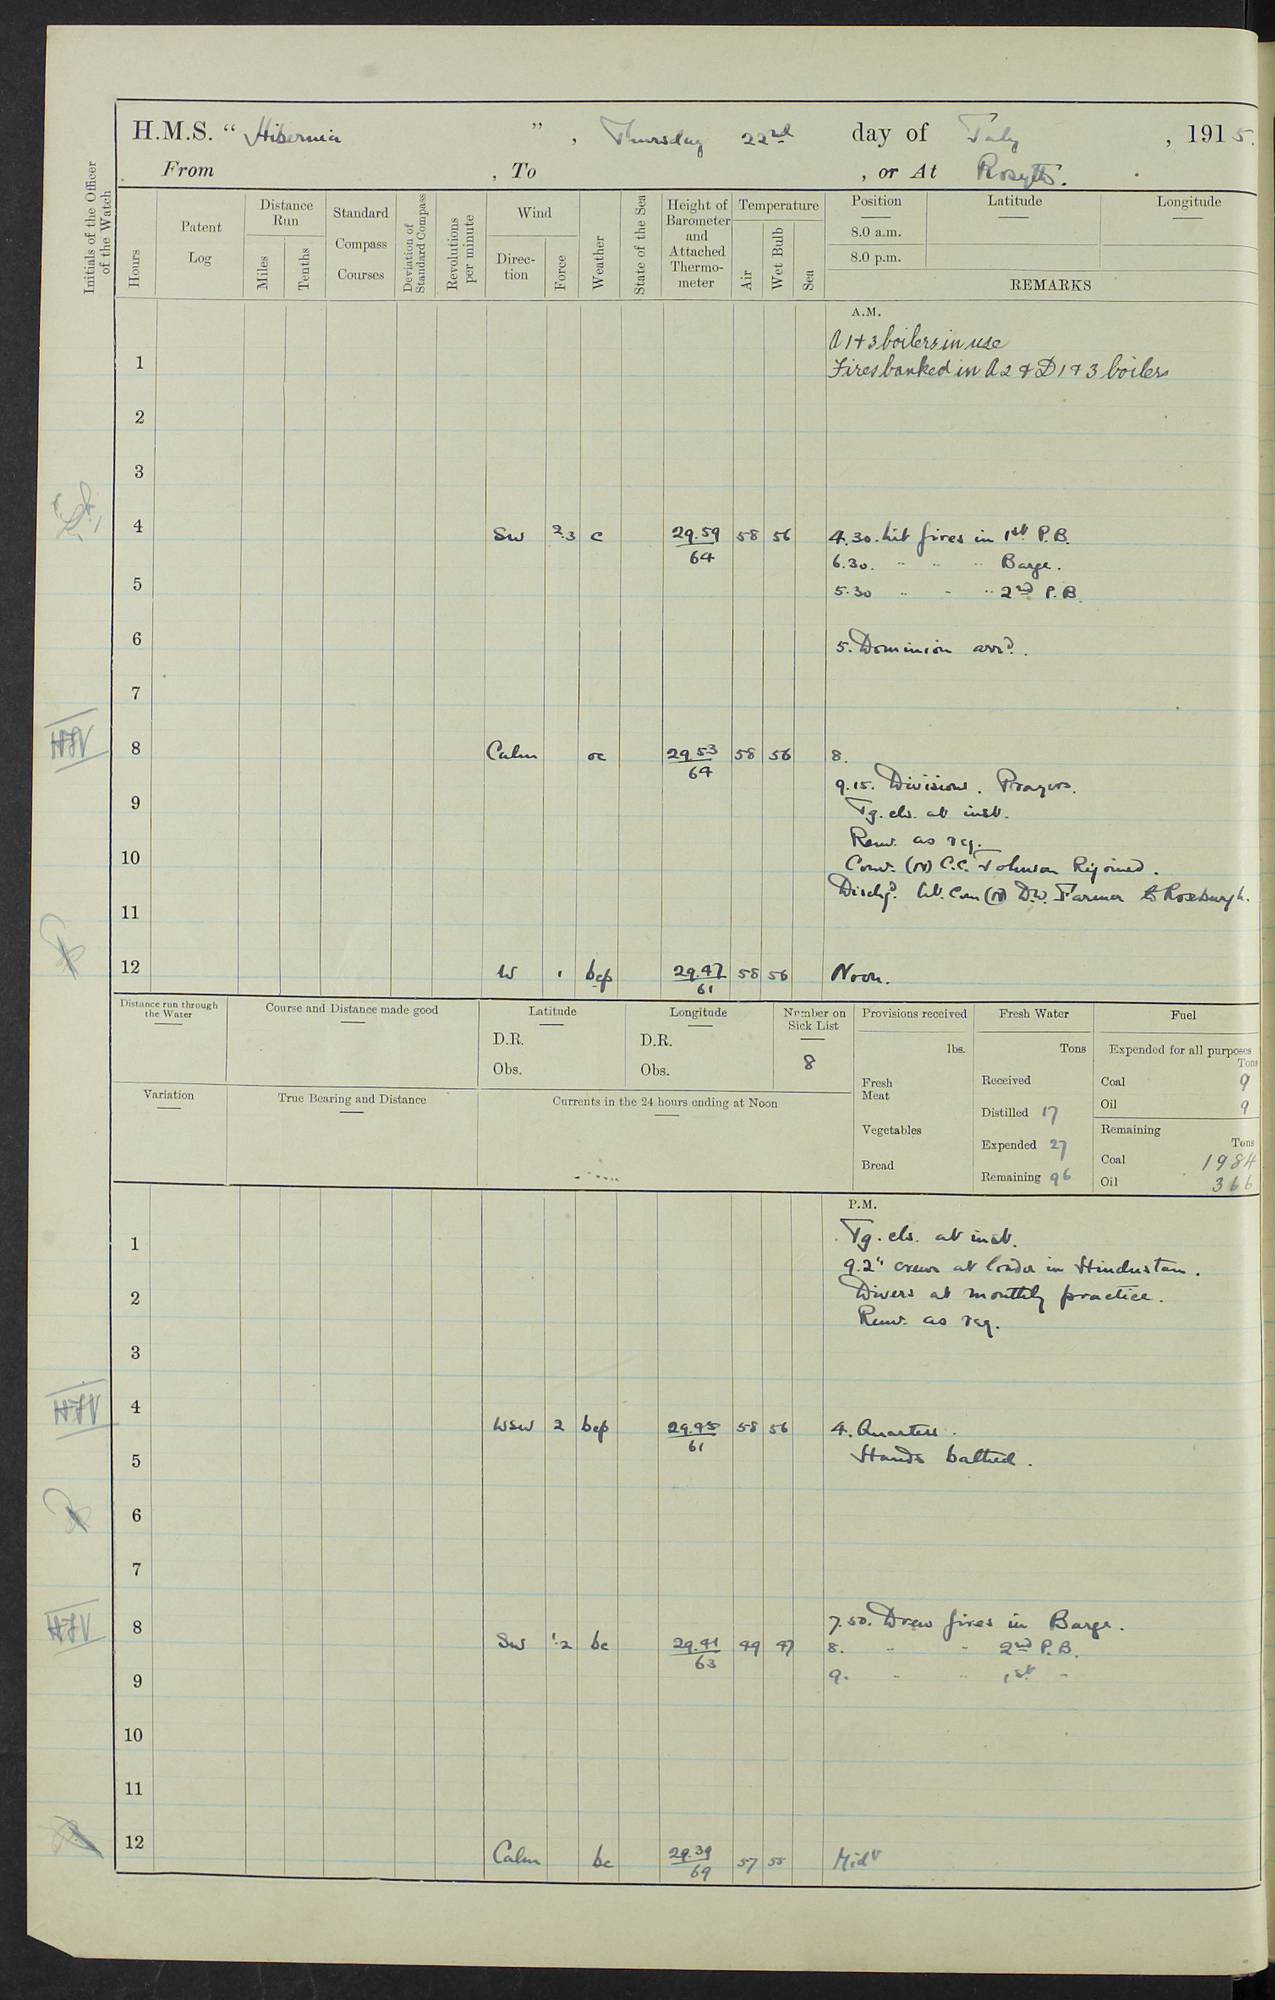 H.M.S. “ Hibernia ” , Thursday 22nd day of July , 1915.
From , To , or At Rosyth.
Initials of the Officer of the Watch
Hours
Patent Log
Distance Run
Miles
Tenths
Standard Compass Courses
Deviation of Standard Compass
Revolutions per minute
Wind
Direction
Force
Weather
State of the Sea
Height of Barometer and Attached Thermometer
Temperature
Air
Wet Bulb
Sea
Position
8.0 a.m.
8.0 p.m.
Latitude
Longitude
REMARKS
A.M.
A 1 + 3 boilers in use
1 Fires banked in A 2 & D 1 + 3 boilers
2
3
4 SW 2.3 c 29.59/64 58 56 4.30. Lit fires in 1st P.B.
6.30. " " " Barge.
5 5.30 " " " 2nd P.B.
6 5. Dominion arrd.
7
HJV 8 Calm oc 29.53/64 58 56 8.
9.15. Divisions. Prayers.
9 Tg. cls. at inst.
Remr. as req.
10 Comr. (N) C.C. Johnson Rejoined.
Dischgd. Lt. Com (N) D.W. Farmer to Roxburgh.
11
12 W 1 bcp 29.47/61 58 56 Noon.
Distance run through the Water
Course and Distance made good
Latitude
D.R.
Obs.
Longitude
D.R.
Obs.
Number on Sick List
8
Provisions received
lbs.
Fresh Meat
Vegetables
Bread
Fresh Water
Tons
Received
Distilled 17
Expended 27
Remaining 96
Fuel
Expended for all purposes
Tons
Coal 9
Oil 9
Remaining
Tons
Coal 1984
Oil 366
Variation
True Bearing and Distance
Currents in the 24 hours ending at Noon
P.M.
1 Tg. cls. at inst.
9.2" crews at loader in Hindustan.
2 Divers at monthly practice.
Remr. as req.
3
HJV 4 WSW 2 bcp 29.45/61 58 56 4. Quarters.
5 Hands bathed.
6
7
7.50. Drew fires in Barge.
HJV 8 SW 1.2 bc 29.41/63 49 47 8. " " 2nd P.B.
9 9. " " 1st "
10
11
12 Calm bc 29.39/69 57 55 Midt